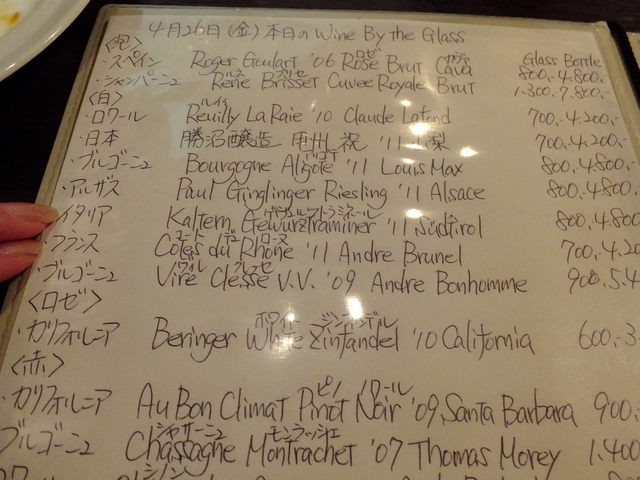 4月26日(金) 本日の Wine By the Glass
<泡> Glass Bottle
・スペイン Roger Goulart '06 Rosé ロゼ Brut Cava カヴァ 800,- 4.800,-
・シャンパーニュ René ルネ Brisset ブリセ Cuvee Royale Brut 1.300,- 7.800,-
<白>
・ロワール Reuilly ルイィ La Raie '10 Claude Lafond 700,- 4.200,-
・日本 勝沼醸造 甲州 祝 '11 山梨 700,- 4.200,-
・ブルゴーニュ Bourgogne Aligoté アリゴテ '11 Louis Max 800,- 4.800,-
・アルザス Paul Ginglinger Riesling '11 Alsace 800,- 4.800,-
・イタリア Kaltern Gewürztraminer ゲヴュルツトラミネール '11 Südtirol 800,- 4.800
・フランス Côtes コート du デュ Rhône ローヌ '11 Andre Brunel 700,- 4.20
・ブルゴーニュ Viré ヴィレ Clessé クレッセ V.V. '09 Andre Bonhomme 900,- 5.4
<ロゼ>
・カリフォルニア Beringer White ホワイト Zinfandel ジンファンデル '10 California 600,- 3
<赤>
・カリフォルニア Au Bon Climat Pinot ピノ Noir ノワール '09 Santa Barbara 900,-
ブルゴーニュ Chassagne シャサーニュ Montrachet モンラッシェ '07 Thomas Morey 1.400
シノン